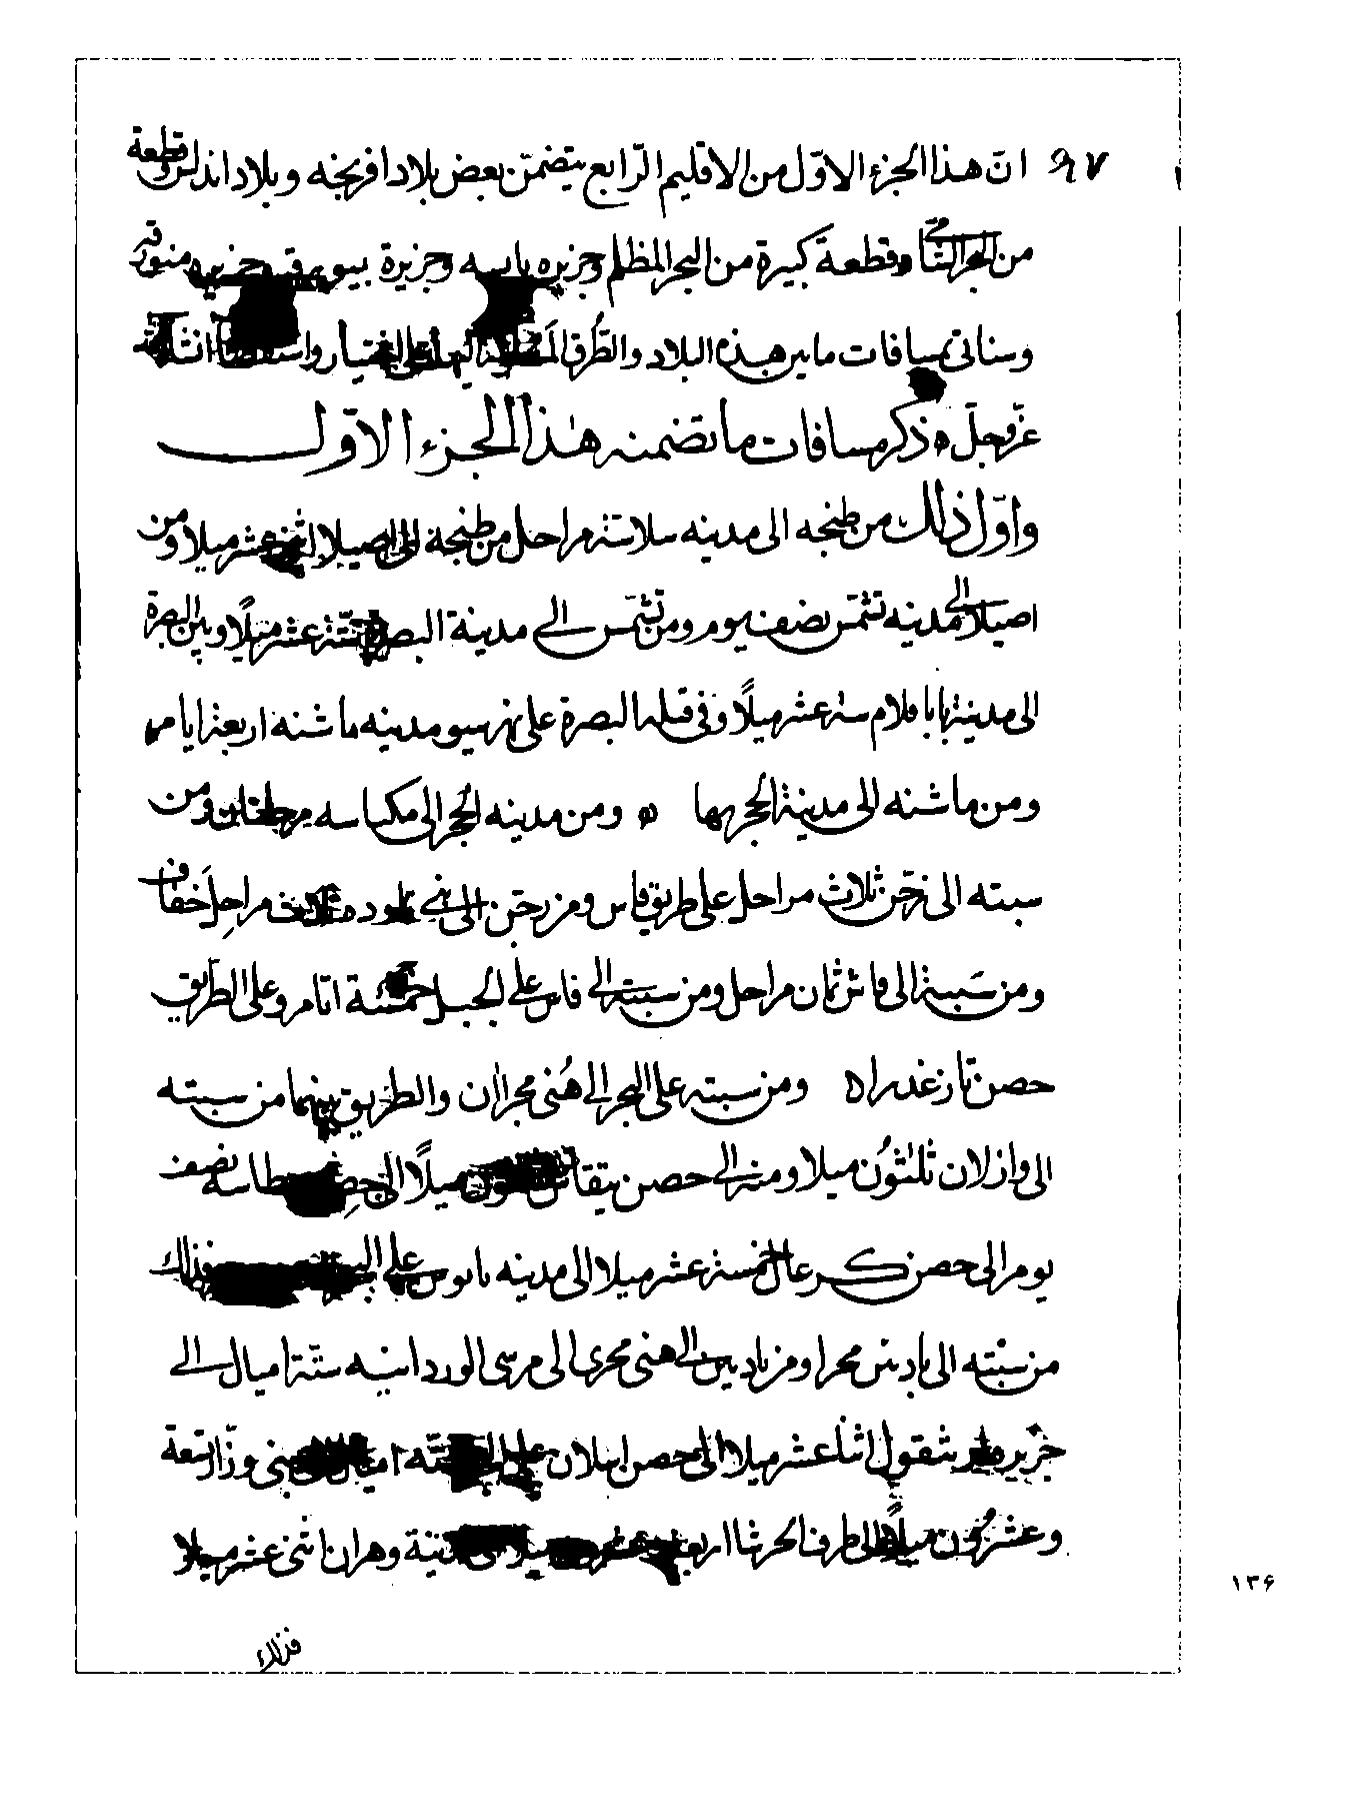 ٩٧ انّ هذا الجزء الاوّل من الاقليم الرّابع يتضمّن بعض بلاد افريجه وبلاد اندلس وقطعة
من البحر الشامى وقطعة كبيرة من البحر المظلم وجزيره يابسه وجزيرة ميورقه وجزيره منورقه
وسناتى بمسافات ما بين هذه البلاد والطُرق
عزّ وجلّ ه ذكر مسافات ما تضمنه هذا الجزء الاوّل
واوّل ذلك من طنجه الى مدينه سلا ستة مراحل من طنجة الى اصيلا اثنى عشر ميلا ومن
اصيلا الى مدينه تشمّس نصف يوم ومن تشمّس الى مدينة البصرة ستّة عشر ميلًا وبين البصرة
الى مدينة باباقلام ستة عشر ميلًا وفى قبلة البصرة على نهر سبو مدينه ماشنه اربعة ايام
ومن ماشنه الى مدينة الحجر ه ومن مدينه الحجر الى مكناسه مرحلتان ومن
سبته الى زجّن ثلاث مراحل على طريق فاس ومن زجّن الى بنى تاوده ثلاث مراحل خفاف
ومن سَبتة الى فاس ثمان مراحل ومن سبته الى فاس على الجبل خمسة ايّام وعلى الطريق
حصن تازغدرا ه ومن سبته على البحر الى هُنى مجراان والطريق بينهما من سبته
الى وازلان ثلثوُن ميلا ومنه الى حصن تيقاس ميلًا الى حصن مسطاسه نصف
يوم الى حصن كرعال خمسة عشر ميلا الى مدينه بادس على البحر وكذلك
من سبته الى بادس مجرا ومن بادس الى هنى مجرى الى مرسى الوردانيه ستّة اميال الى
جزيره القشقول اثنا عشر ميلا الى حصن اسلان على البحر ستّه اميال هنى وزار تسعة
وعشرون ميلًا الى طرف الحرشا اربعة عشر ميلا مدينة وهران اثنى عشر ميلا
١٣۶